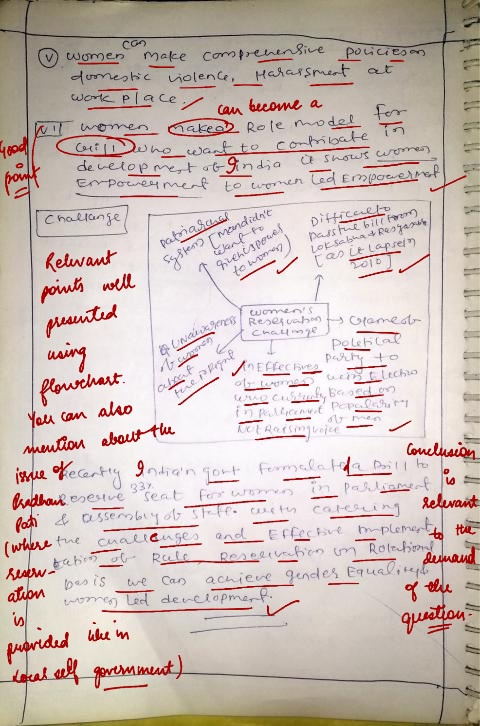 can
(v) women make comprehensive policies on
domestic violence, Harassment at
work place.
can become a
vi) women makes Role model for
Girl who want to contribute in
development of India it shows women
Empowerment to women led Empowerment
Good
point
Challange
Relevant
points well
presented
using
flowchart.
You can also
mention about the
issue of
Pradhan
Pati
(where
reserv-
ation
is
provided like in
local self government)
Patriarchal
System
want to
to women
Difficult to
Pass the bill from
Loksabha
as it lapse in
2010
women's
Reservation
Challenge
Unawareness
of women
about
the
inEffectives
of women
who
in parliament
Not Raising voice
political
Party to
win Electio
based on
Popularity
of men
Recently India'n govt formalat a Bill to
Reserve 33% Seat for women in Parliament
& assembly of state. with catering
the challenges and Effective Implement
tation of Rule Reservation on Rotational
basis we can achieve gender Equality
women led development.
Conclusion
is
relevant
to the
demand
of the
question.